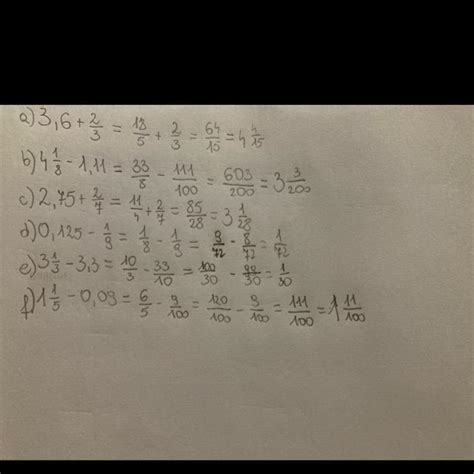 a) 3,6 + 2/3 = 18/5 + 2/3 = 64/15 = 4 4/15
b) 4 1/8 - 1,11 = 33/8 - 111/100 = 603/200 = 3 3/200
c) 2,75 + 2/7 = 11/4 + 2/7 = 85/28 = 3 1/28
d) 0,125 - 1/9 = 1/8 - 1/9 = 9/72 - 8/72 = 1/72
e) 3 1/3 - 3,3 = 10/3 - 33/10 = 100/30 - 99/30 = 1/30
f) 1 1/5 - 0,09 = 6/5 - 9/100 = 120/100 - 9/100 = 111/100 = 1 11/100